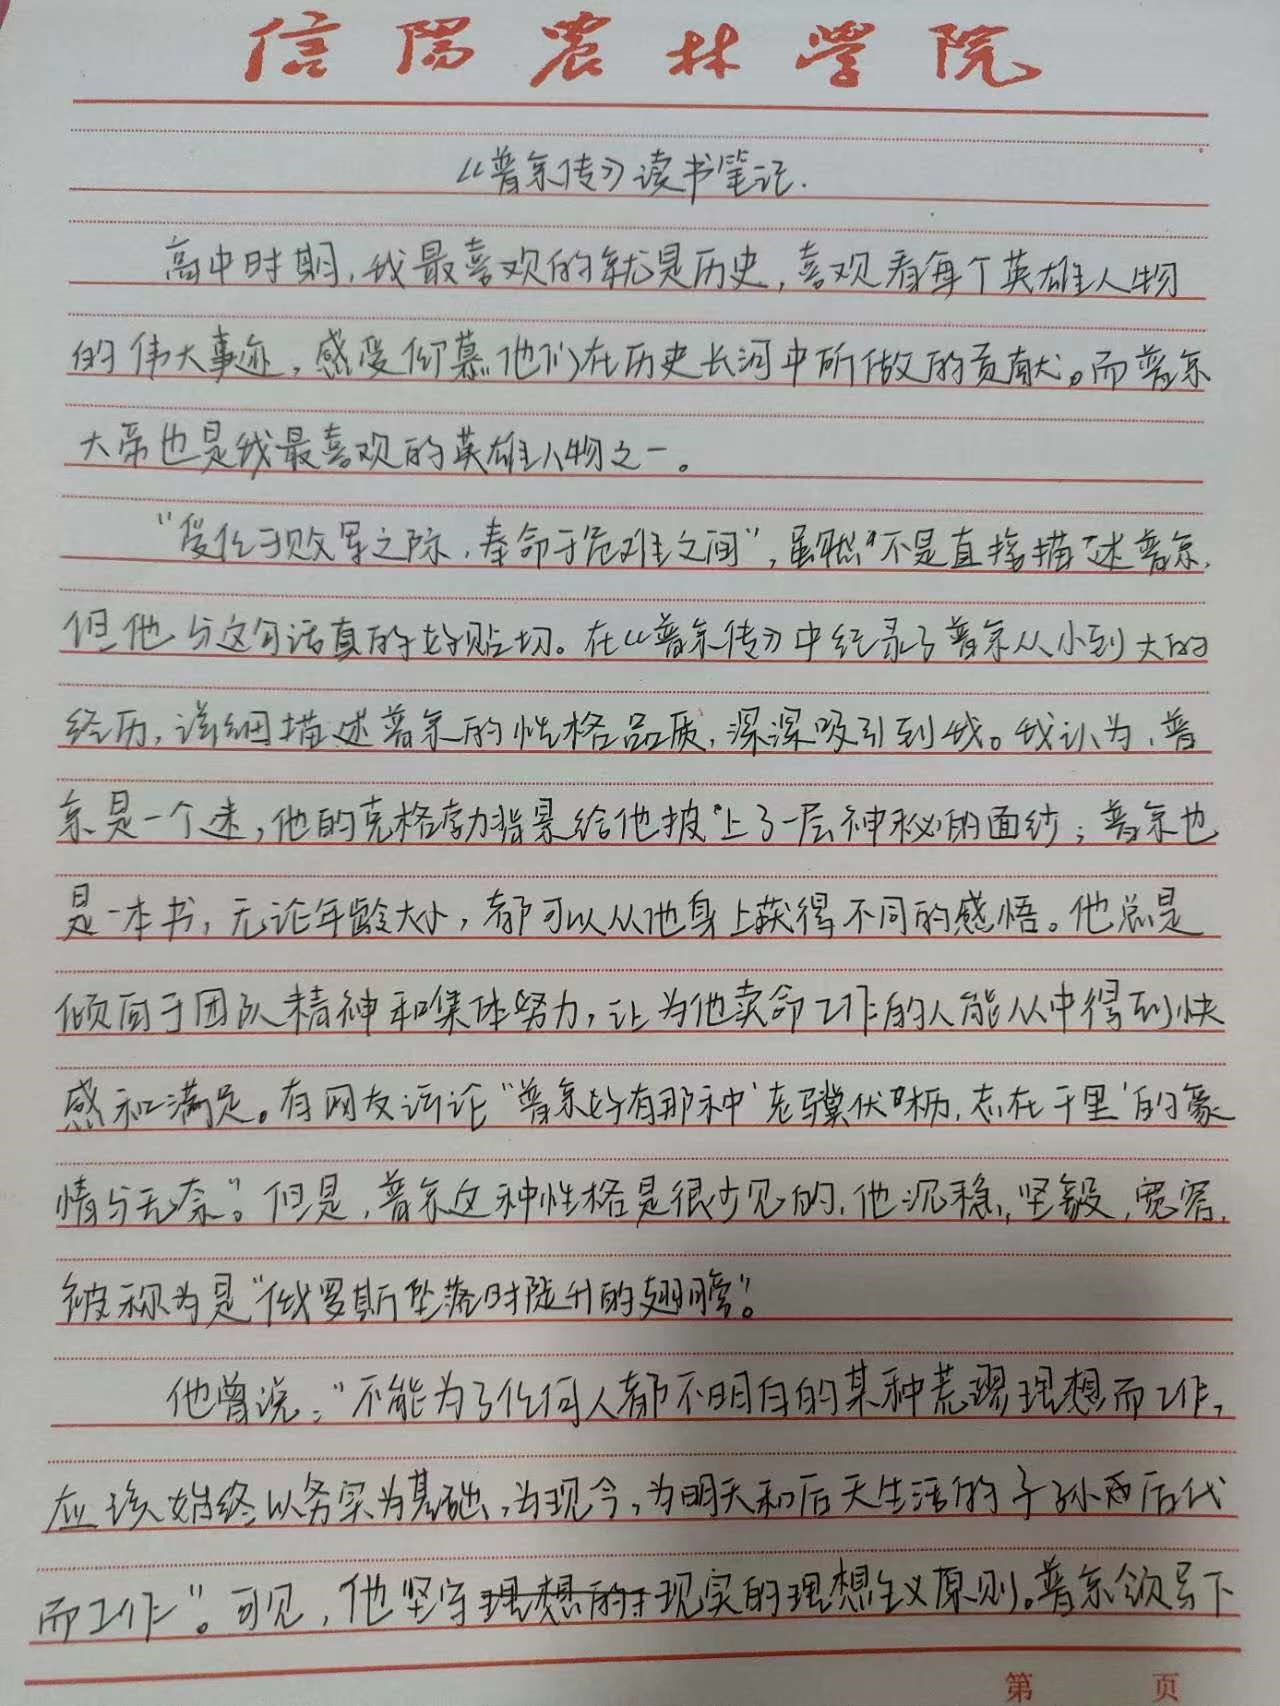 信阳农林学院
《普京传》读书笔记.
高中时期,我最喜欢的就是历史,喜欢看每个英雄人物
的伟大事迹,感受仰慕他们在历史长河中所做的贡献。而普京
大帝也是我最喜欢的英雄人物之一。
"受任于败军之际,奉命于危难之间",虽然不是直接描述普京,
但他与这句话真的好贴切。在《普京传》中纪录了普京从小到大的
经历,详细描述普京的性格品质,深深吸引到我。我认为,普
京是一个迷,他的克格勃背景给他披上了一层神秘的面纱;普京也
是一本书,无论年龄大小,都可以从他身上获得不同的感悟。他总是
倾向于团队精神和集体努力,让为他卖命工作的人能从中得到快
感和满足。有网友评论"普京好有那种'老骥伏枥,志在千里'的豪
情与无奈"。但是,普京这种性格是很少见的,他沉稳,坚毅,宽容,
被称为是"俄罗斯坠落时陡升的翅膀"。
他曾说:"不能为了任何人都不明白的某种荒谬理想而工作,
应该始终以务实为基础,为现今,为明天和后天生活的子孙后代
而工作"。可见,他坚守理想的现实的理想主义原则。普京领导下
第 页